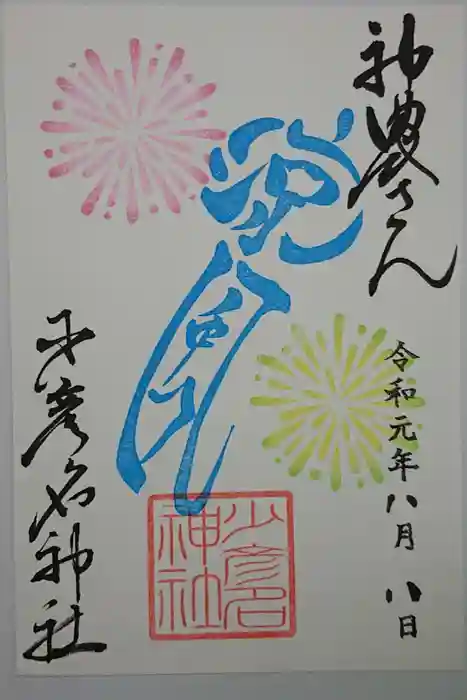 神農さん
令和元年八月八日
少彦名神社
少彦名
神社